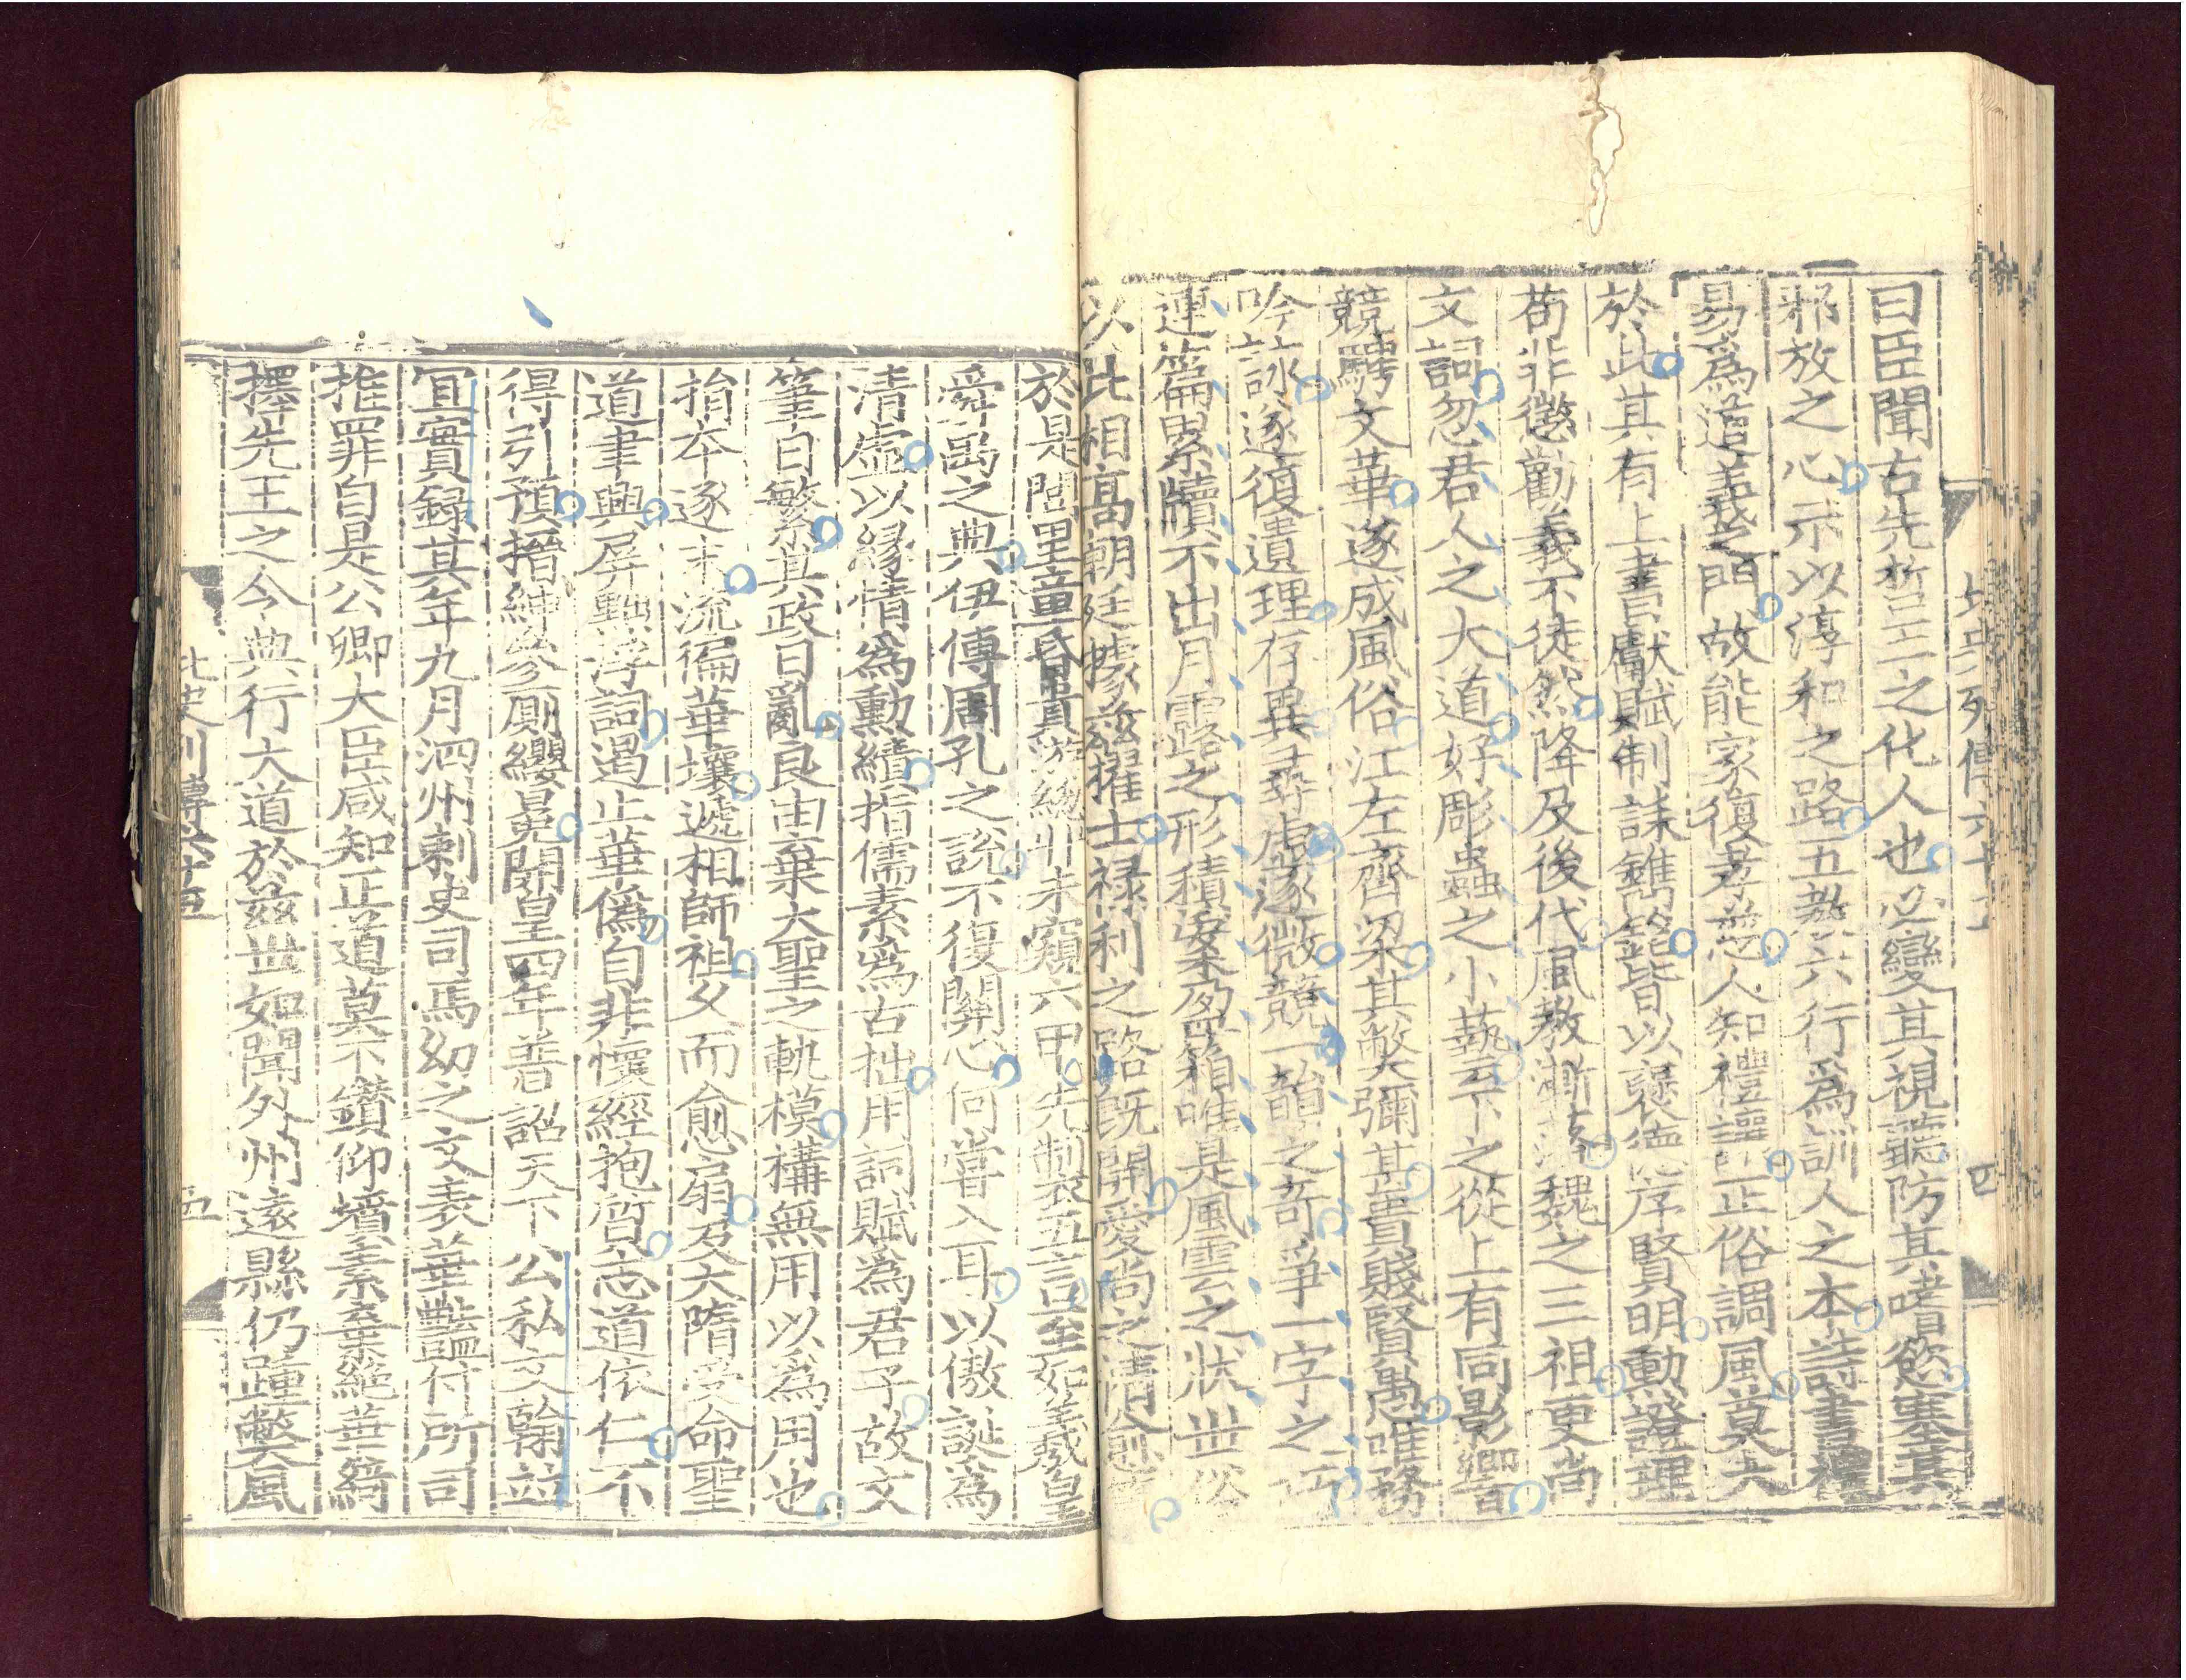 北史列傳六十五
四
曰臣聞古先哲王之化人也必變其視聽防其嗜慾塞其
邪放之心示以淳和之路五教六行爲訓人之本詩書禮
易爲道義之門故能家復孝慈人知禮讓正俗調風莫大
於此其有上書獻賦制誄鐫銘皆以襃德序賢明勳證理
苟非懲勸義不徒然降及後代風教漸落魏之三祖更尚
文詞忽君人之大道好彫蟲之小藝下之從上有同影響
競騁文華遂成風俗江左齊梁其弊彌甚貴賤賢愚唯務
吟詠遂復遺理存異尋虛逐微競一韻之奇爭一字之巧
連篇累牘不出月露之形積案盈箱唯是風雲之狀世俗
以此相高朝廷據兹擢士禄利之路既開愛尚之情愈
於是閭里童昏貴游緫丱未窺六甲先制五言至如羲皇
舜禹之典伊傅周孔之說不復關心何嘗入耳以傲誕爲
清虛以緣情爲勳績指儒素爲古拙用詞賦爲君子故文
筆日繁其政日亂良由弃大聖之軌模構無用以爲用也
捐本逐末流徧華壤遞相師祖父而愈扇及大隋受命聖
道聿興屏黜浮詞遏止華僞自非懷經抱質志道依仁不
得引預搢紳參厠纓冕開皇四年普詔天下公私文翰並
宜實録其年九月泗州刺史司馬幼之文表華艷付所司
推罪自是公卿大臣咸知正道莫不鑽仰墳素棄絶華綺
擇先王之令典行大道於兹世如聞外州遠縣仍踵弊風
北史列傳六十五
五